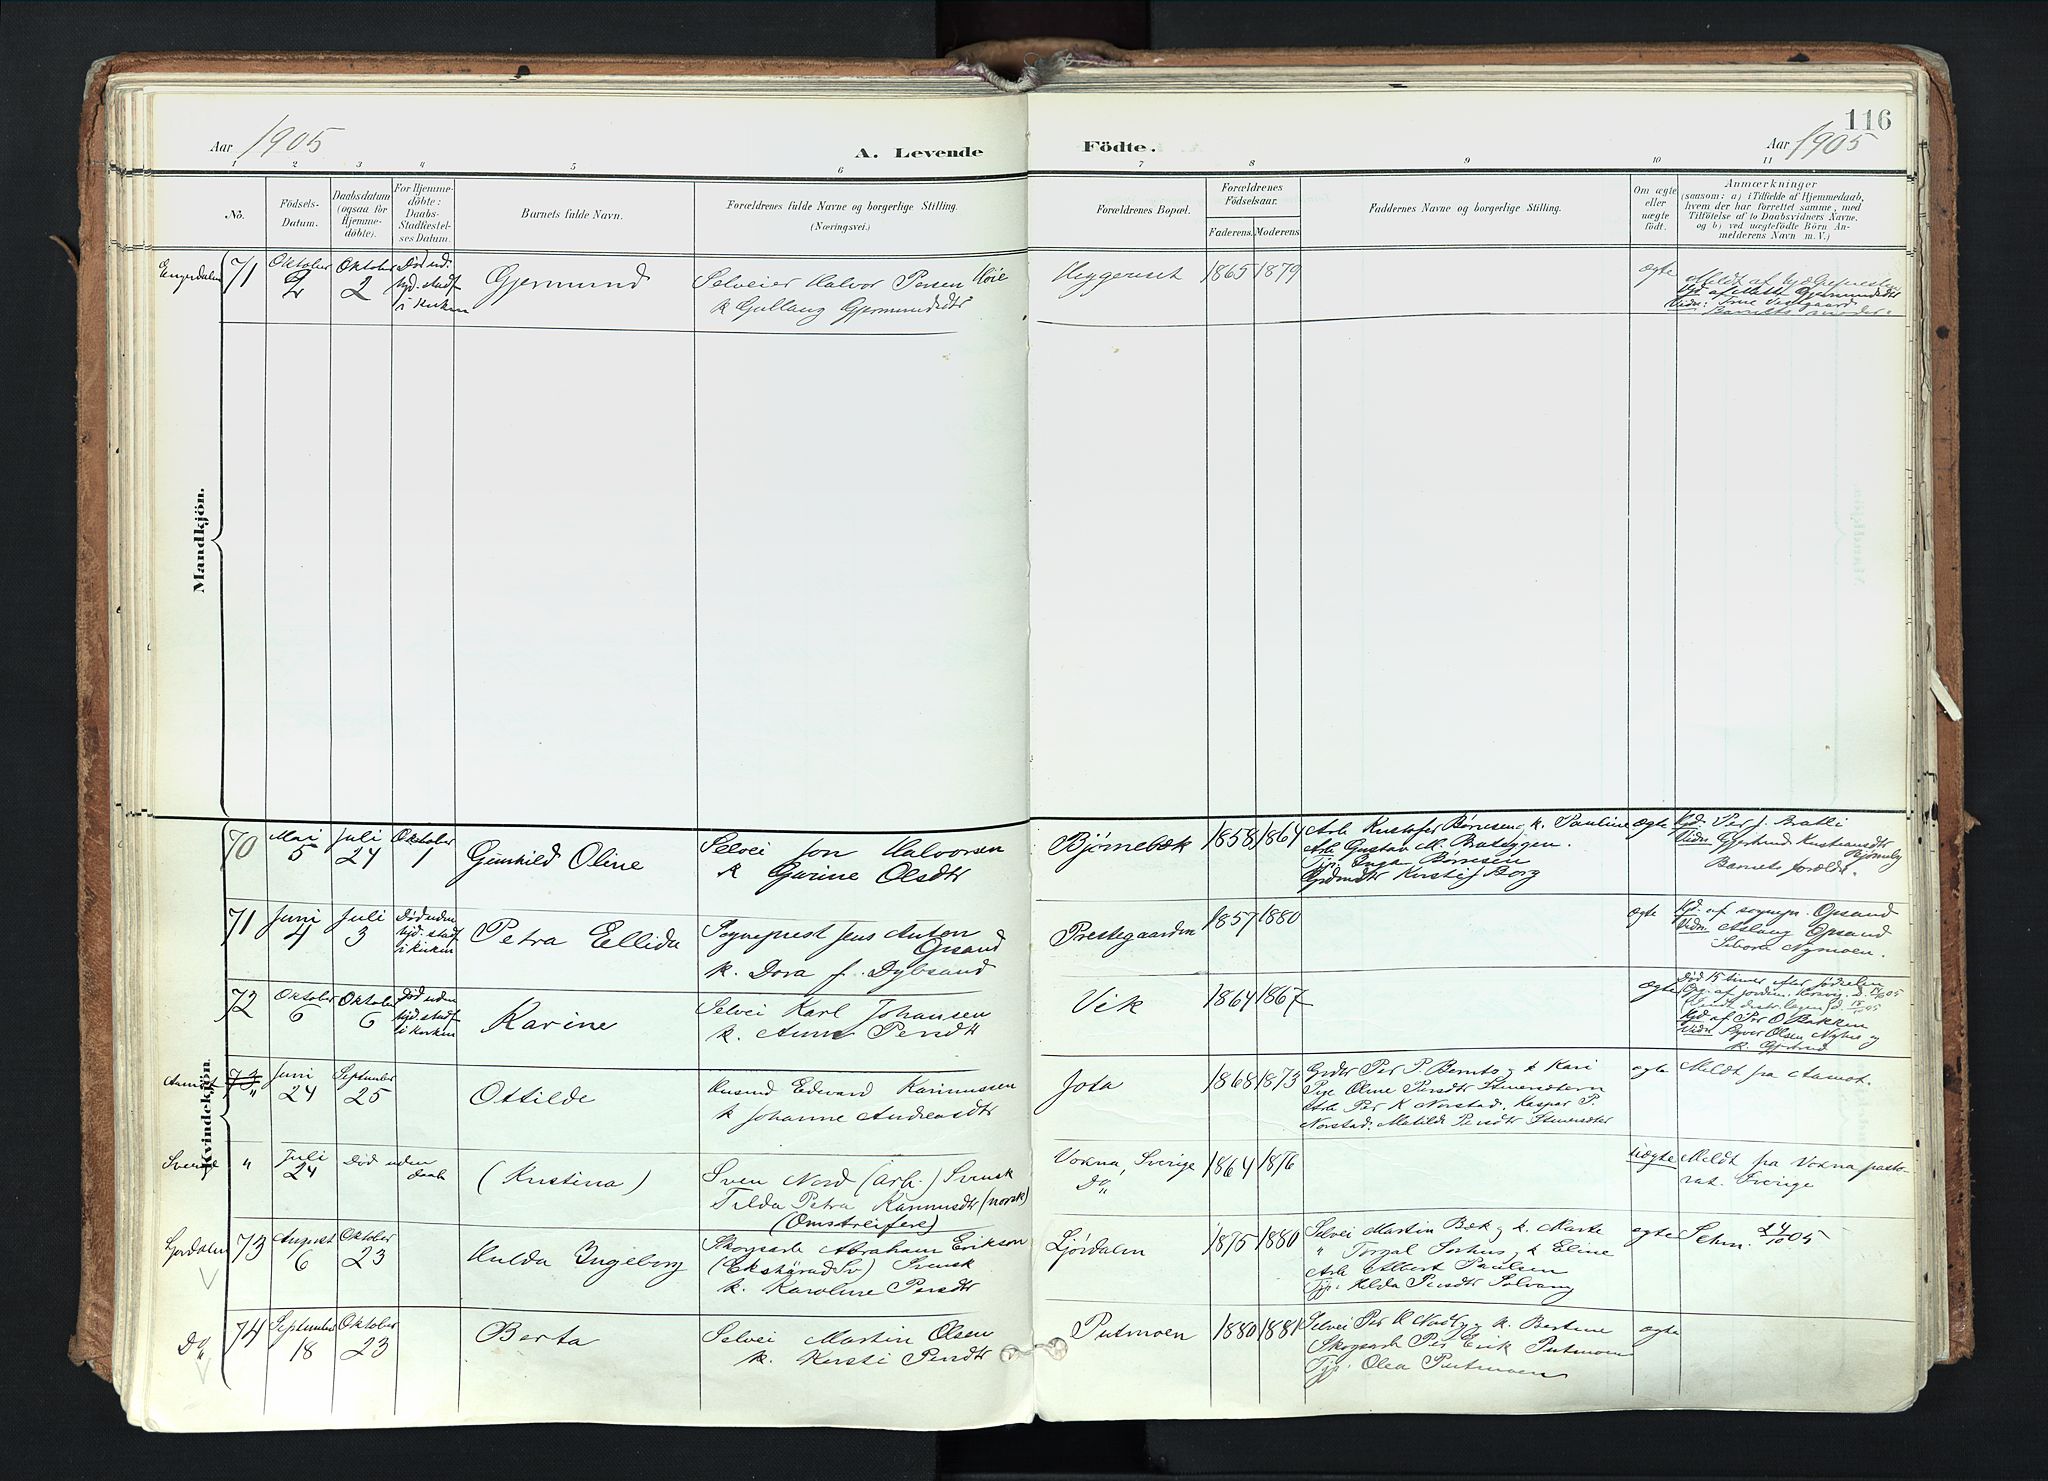 116
Aar 1905
A. Levende
Födte.
Aar 1905
1 2 3 4 5 6 7 8 9 10 11
No.
Födsels-
Datum.
Daabsdatum
(ogsaa for
Hjemme-
döbte).
For Hjemme-
döbte:
Daabs-
Stadfæstel-
ses Datum.
Barnets fulde Navn.
Forældrenes fulde Navne og borgerlige Stilling.
(Næringsvei.)
Forældrenes Bopæl.
Forældrenes
Födselsaar.
Faderens. Moderens
Faddernes Navne og borgerlige Stilling.
Om ægte
eller
uægte
födt.
Anmærkninger
(saasom: a) i Tilfælde af Hjemmedaab,
hvem der har forrettet samme, med
Tilföielse af to Daabsvidners Navne,
og b) ved uægtefödte Börn An-
melderens Navn m. V.)
Mandkjön.
Engerdalen 71 Oktober 2 Oktober 2 Død ud. hjd. stadf i kirken
Gjermund
Selveier Halvor Persen Höie
k Gullaug Gjermundsdtr
Heggeriset 1865 1879
ægte
Barnets moder.
Kvindekjön.
70 Mai 5 Juli 24 Oktober 1
Gunhild Oline
Selvei Jon Halvorsen
k Gurine Olsdtr
Bjørnebæk 1858 1864
Arb Kristofer Børresen, k. Pauline
Arb Gustav M. Brateggen.
Tjp. Inga Børresen
Grdmdtr Kersti J Borg
ægte
Hjd. Per J. Balli
Vidn Gjertrud Kristiansdtr
Barnets foreldr.
71 Juni 4 Juli 3 Død uden hjd. stadf i kirken
Petra Ellida
Sogneprest Jens Anton
Opsand
k. Dora f. Dybsand
Prestegaarden 1857 1880
ægte
Hjd. af sognepr. Opsand
Vidn Aslaug Opsand
Nymoen.
72 Oktober 6 Oktober 6 Død uden hjd. stadf i kirken
Karine
Selvei Karl Johansen
k. Anne Persdtr
Vik 1864 1867
ægte
Død 15 timer efter fødselen
Hjd af Per O Bakken
Aamot 73 " Juni 24 September 25
Ottilde
Husmd Edward Rasmussen
k Johanne Andreasdtr
Jota 1868 1873
Grdbr Per P. Berntsg k Kari
Pige Oline Persdtr
Arb Per K Norstad. Kaspar P.
Norstad. Matilde Persdtr
ægte
Meldt fra Aamot.
Sverige " Juli 24 Død uden daab
(Kristina)
Sven Nord (arb.) Svensk
Tilda Petra Rasmusdtr (norsk)
(Omstreifere)
Voxna, Sverige
Do
1864 1876
uægte
Meldt fra Voxna pasto-
rat. Sverige
Ljørdalen 73 August 6 Oktober 23
Hulda Ingeborg
Skogsarb Abraham Erikson
(Ekshärad Sv) Svensk
k. Karoline Persdtr
Ljørdalen 1875 1880
Selvei Martin Bek g k. Marte
" Torgal Sørhus g k Eline
Arb Albert Paulsen
Tjp. Hilda Persdtr Solvang
ægte
Sehm. 24/10 05
Do 74 September 18 Oktober 23
Berta
Selvei Martin Olsen
k. Kersti Persdtr
Putmoen 1880 1881
Selvei Per O Nordby g k. Bertine
Skogsarb Per Erik Putmoen
Tjp. Olea Putmoen
ægte